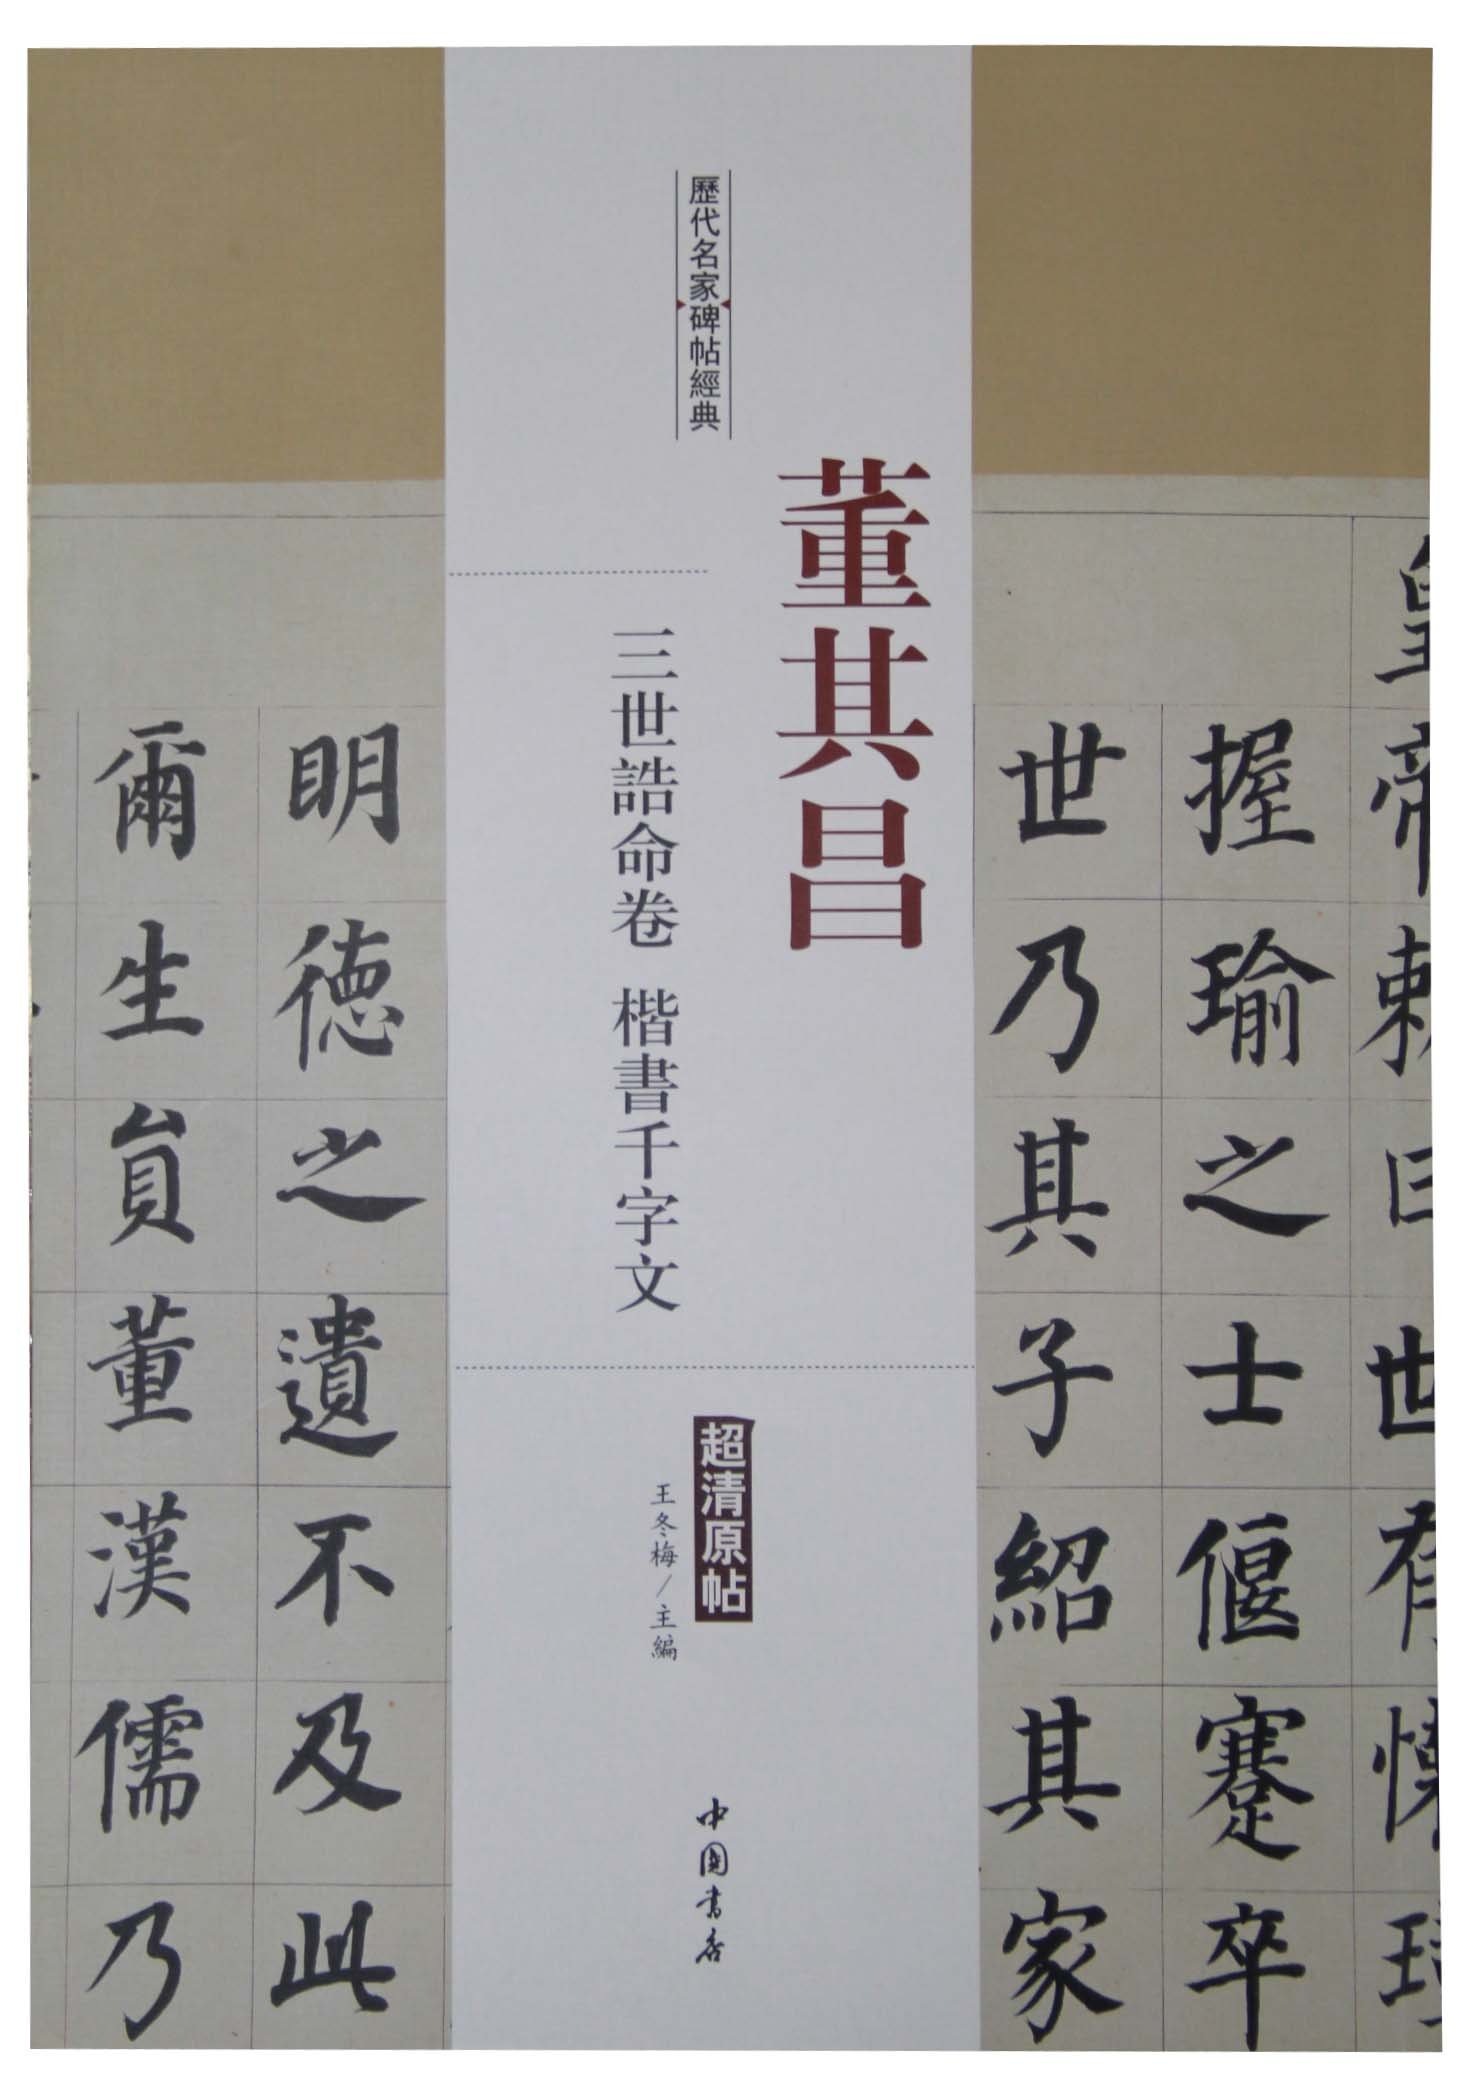 皇帝敕曰世有懷瑾
握瑜之士偃蹇卒
世乃其子紹其家
董其昌
歷代名家碑帖經典
三世誥命卷 楷書千字文
超清原帖
王冬梅/主編
中国书店
明德之遺不及此
爾生員董漢儒乃